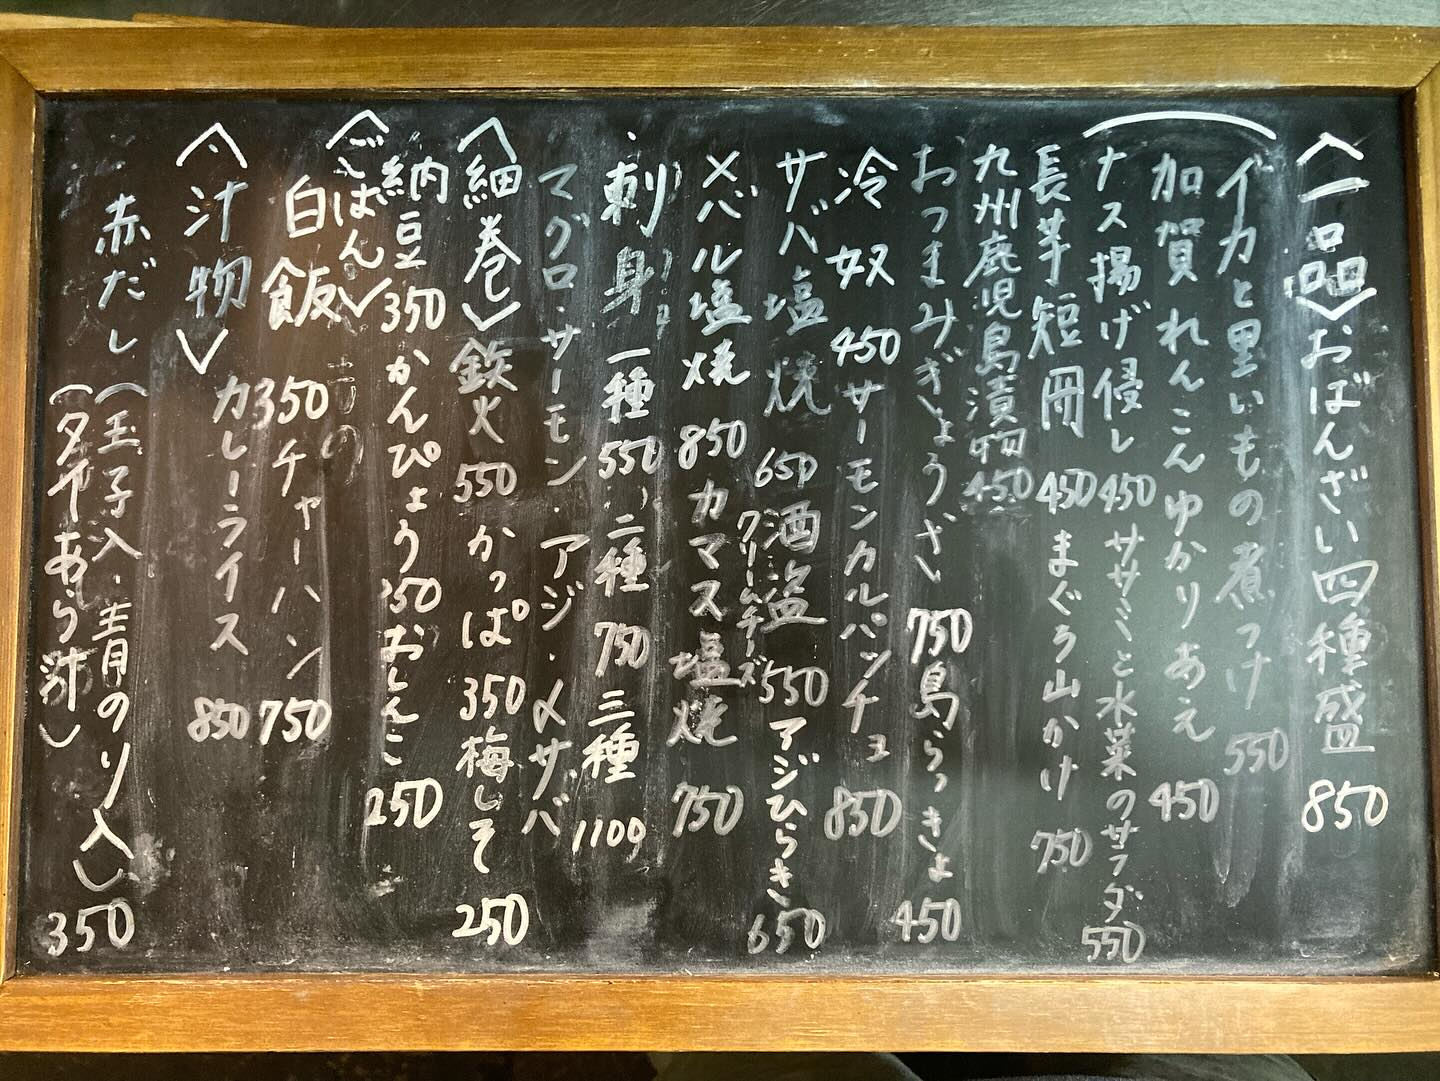 〈一品〉おばんざい四種盛 850
イカと里いもの煮つけ 550
加賀れんこんゆかりあえ 450
ナス揚げ浸し 450 ササミと水菜のサラダ 550
長芋短冊 450 まぐろ山かけ 750
九州鹿児島漬物 450
おつまみぎょうざ 750 島らっきょ 450
冷奴 450 サーモンカルパッチョ 850
サバ塩焼 650 酒盗 550 アジひらき 650
クリームチーズ
メバル塩焼 850 カマス塩焼 750
刺身 一種 550 二種 750 三種 1100
マグロ・サーモン・アジ・〆サバ
〈細巻〉鉄火 550 かっぱ 350 梅しそ 250
納豆 350 かんぴょう 350 おしんこ 250
〈ごはん〉
白飯 350 チャーハン 750
カレーライス 850
〈汁物〉
赤だし (玉子入・青のり入)
(タイあら汁) 350